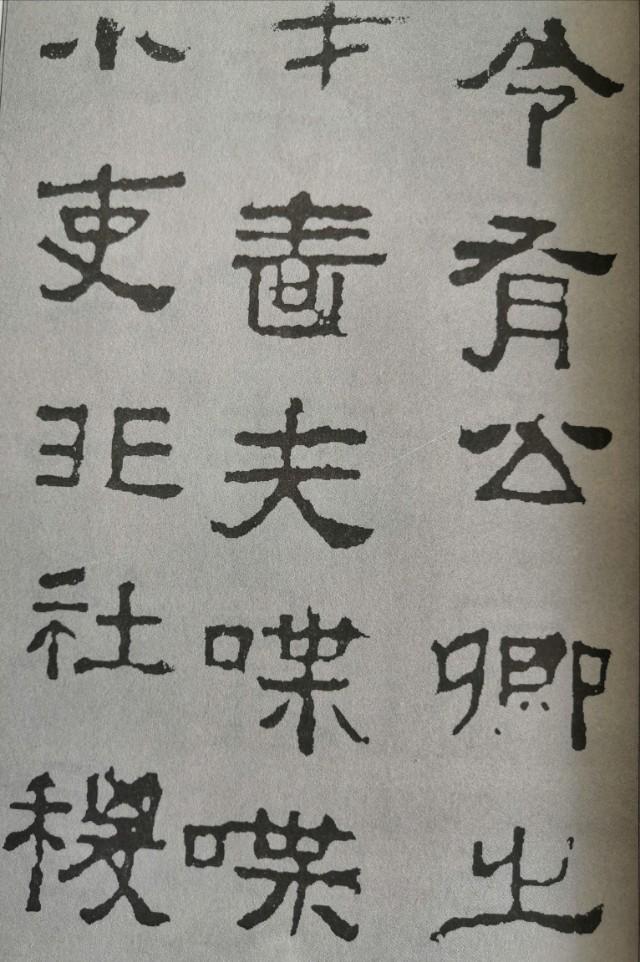 今有公卿之
才嗇夫喋喋
小吏非社稷